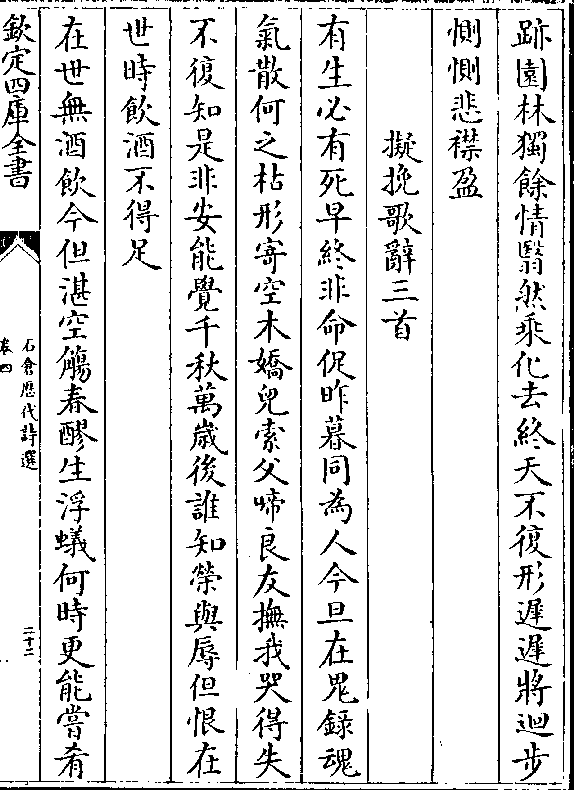 跡園林獨餘情翳然乘化去終天不復形遲遲將迴步
惻惻悲襟盈
擬挽歌辭三首
有生必有死早終非命促昨暮同為人今旦在鬼錄魂
氣散何之枯形寄空木嬌兒索父啼良友撫我哭得失
不復知是非安能覺千秋萬歲後誰知榮與辱但恨在
世時飲酒不得足
在世無酒飲今但湛空觴春醪生浮蟻何時更能嘗肴
欽定四庫全書
石倉歷代詩選
卷四
二十二